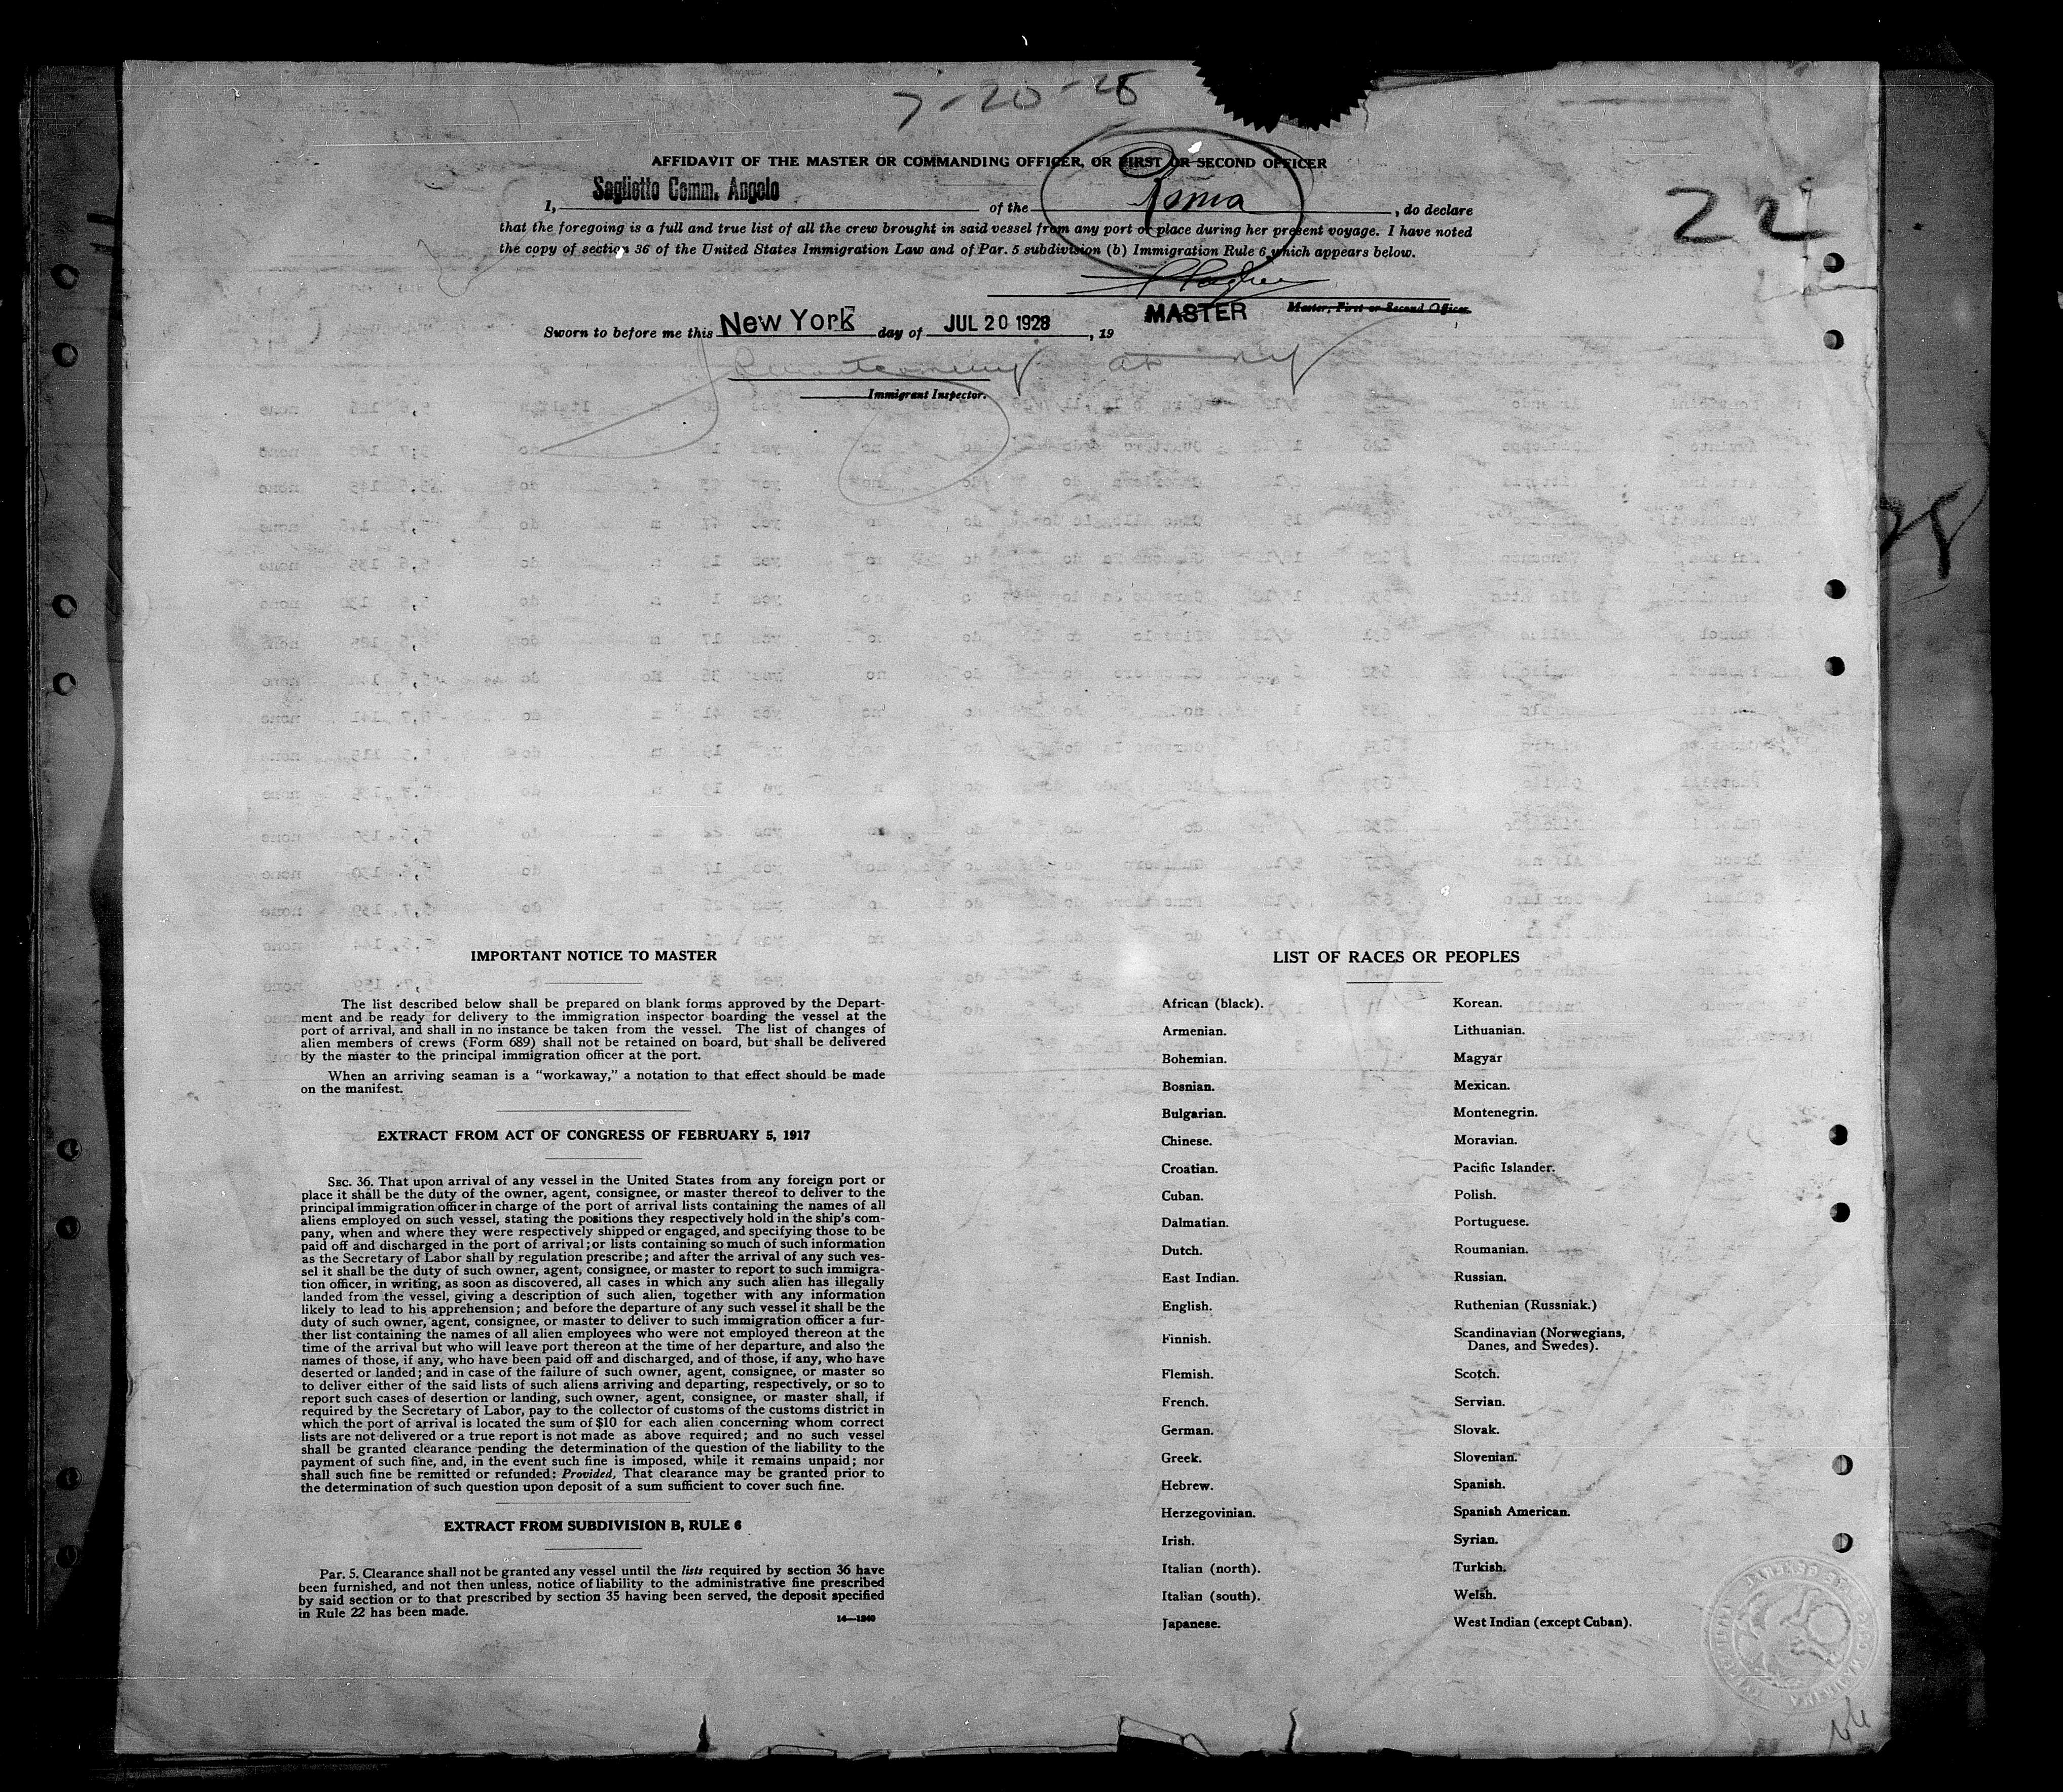 7-20-28
AFFIDAVIT OF THE MASTER OR COMMANDING OFFICER, OR FIRST OR SECOND OFFICER
I, Saglietto Comm. Angelo of the Roma, do declare
that the foregoing is a full and true list of all the crew brought in said vessel from any port or place during her present voyage. I have noted
the copy of section 36 of the United States Immigration Law and of Par. 5 subdivision (b) Immigration Rule 6 which appears below.
22
MASTER Master, First or Second Officer.
Sworn to before me this New York day of JUL 20 1928, 19
Montgomery at NY
Immigrant Inspector.
28
IMPORTANT NOTICE TO MASTER
The list described below shall be prepared on blank forms approved by the Depart-
ment and be ready for delivery to the immigration inspector boarding the vessel at the
port of arrival, and shall in no instance be taken from the vessel. The list of changes of
alien members of crews (Form 689) shall not be retained on board, but shall be delivered
by the master to the principal immigration officer at the port.
When an arriving seaman is a "workaway," a notation to that effect should be made
on the manifest.
EXTRACT FROM ACT OF CONGRESS OF FEBRUARY 5, 1917
SEC. 36. That upon arrival of any vessel in the United States from any foreign port or
place it shall be the duty of the owner, agent, consignee, or master thereof to deliver to the
principal immigration officer in charge of the port of arrival lists containing the names of all
aliens employed on such vessel, stating the positions they respectively hold in the ship's com-
pany, when and where they were respectively shipped or engaged, and specifying those to be
paid off and discharged in the port of arrival; or lists containing so much of such information
as the Secretary of Labor shall by regulation prescribe; and after the arrival of any such ves-
sel it shall be the duty of such owner, agent, consignee, or master to report to such immigra-
tion officer, in writing, as soon as discovered, all cases in which any such alien has illegally
landed from the vessel, giving a description of such alien, together with any information
likely to lead to his apprehension; and before the departure of any such vessel it shall be the
duty of such owner, agent, consignee, or master to deliver to such immigration officer a fur-
ther list containing the names of all alien employees who were not employed thereon at the
time of the arrival but who will leave port thereon at the time of her departure, and also the
names of those, if any, who have been paid off and discharged, and of those, if any, who have
deserted or landed; and in case of the failure of such owner, agent, consignee, or master so
to deliver either of the said lists of such aliens arriving and departing, respectively, or so to
report such cases of desertion or landing, such owner, agent, consignee, or master shall, if
required by the Secretary of Labor, pay to the collector of customs of the customs district in
which the port of arrival is located the sum of $10 for each alien concerning whom correct
lists are not delivered or a true report is not made as above required; and no such vessel
shall be granted clearance pending the determination of the question of the liability to the
payment of such fine, and, in the event such fine is imposed, while it remains unpaid; nor
shall such fine be remitted or refunded: Provided, That clearance may be granted prior to
the determination of such question upon deposit of a sum sufficient to cover such fine.
EXTRACT FROM SUBDIVISION B, RULE 6
Par. 5. Clearance shall not be granted any vessel until the lists required by section 36 have
been furnished, and not then unless, notice of liability to the administrative fine prescribed
by said section or to that prescribed by section 35 having been served, the deposit specified
in Rule 22 has been made.
14—1240
LIST OF RACES OR PEOPLES
African (black).
Armenian.
Bohemian.
Bosnian.
Bulgarian.
Chinese.
Croatian.
Cuban.
Dalmatian.
Dutch.
East Indian.
English.
Finnish.
Flemish.
French.
German.
Greek.
Hebrew.
Herzegovinian.
Irish.
Italian (north).
Italian (south).
Japanese.
Korean.
Lithuanian.
Magyar
Mexican.
Montenegrin.
Moravian.
Pacific Islander.
Polish.
Portuguese.
Roumanian.
Russian.
Ruthenian (Russniak.)
Scandinavian (Norwegians,
Danes, and Swedes).
Scotch.
Servian.
Slovak.
Slovenian.
Spanish.
Spanish American.
Syrian.
Turkish.
Welsh.
West Indian (except Cuban).